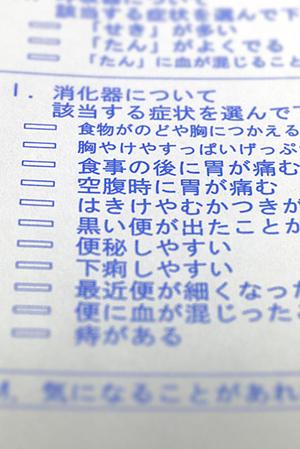 について
該当する症状を選んで下
「せき」が多い
「たん」がよくでる
「たん」に血が混じること
I. 消化器について
該当する症状を選んで下
食物がのどや胸につかえる
胸やけやすっぱいげっぷ
食事の後に胃が痛む
空腹時に胃が痛む
はきけやむかつきが
黒い便が出たことか
便秘しやすい
下痢しやすい
最近便が細くなった
便に血が混じったこ
痔がある
気になることがあれ